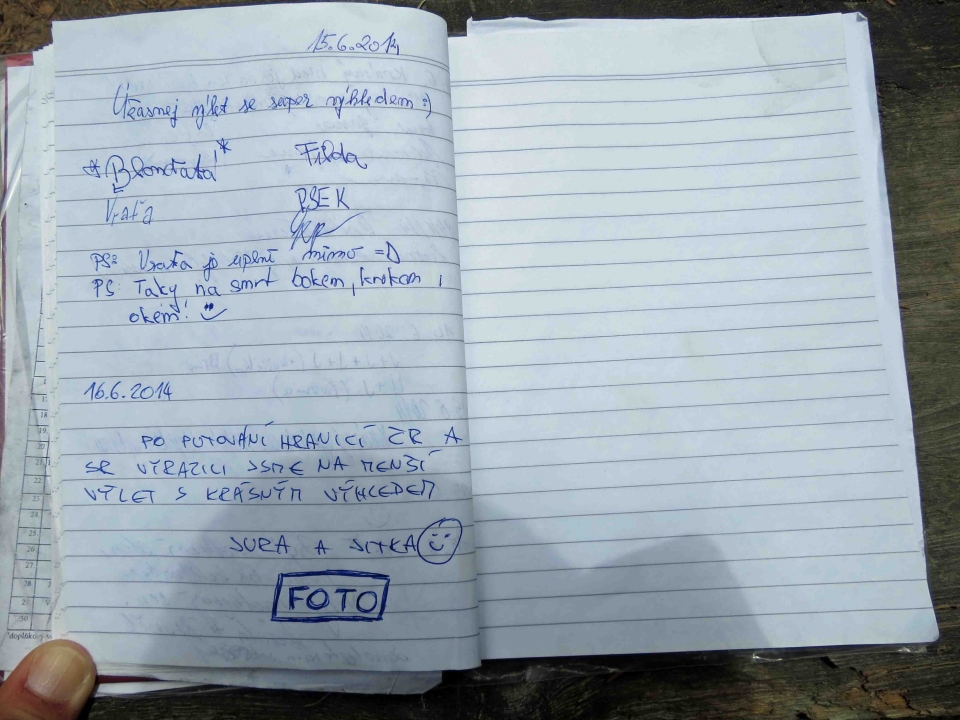 15.6.2014
Úžasnej výlet se super výhledem :)
* Blonďatá * Filda
Vraťa PSEK
PS: Vraťa je uplně mimo =D
PS: Taky na smrt bokem, krokem i
okém!
16.6.2014
PO PUTOVÁNÍ HRANICÍ ČR A
SR VYRAZILI JSME NA MENŠÍ
VÝLET S KRÁSNÝM VÝHLEDEM
JURA A JITKA
FOTO